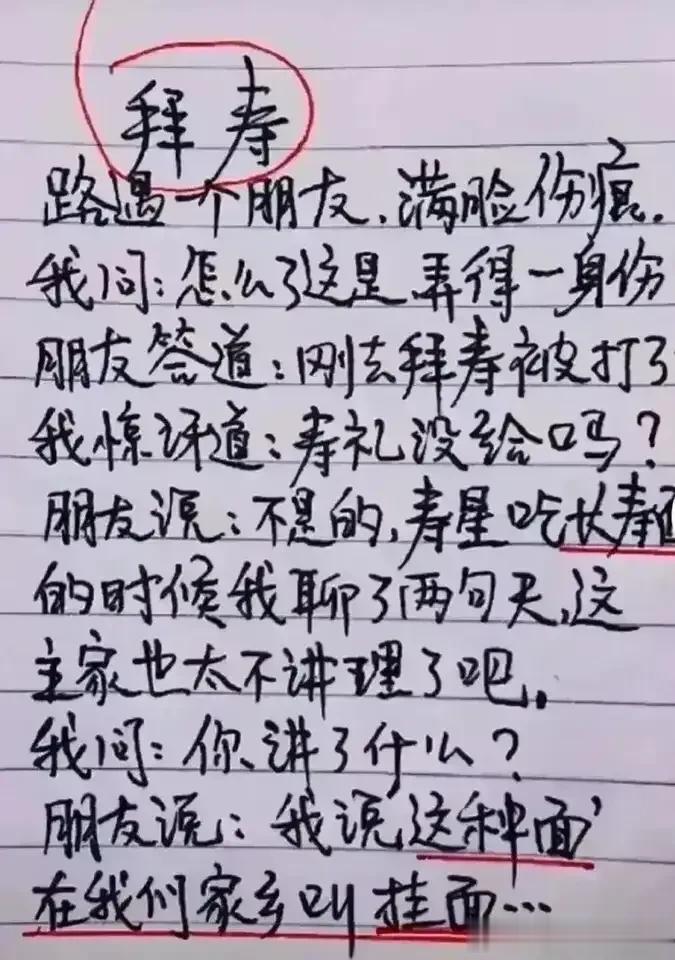 拜寿
路遇一个朋友，满脸伤痕．
我问：怎么了这是弄得一身伤
朋友答道：刚去拜寿被打了
我惊讶道：寿礼没给吗？
朋友说：不是的，寿星吃长寿面
的时候我聊了两句天，这
主家也太不讲理了吧．
我问：你讲了什么？
朋友说：我说这种面
在我们家乡叫挂面…